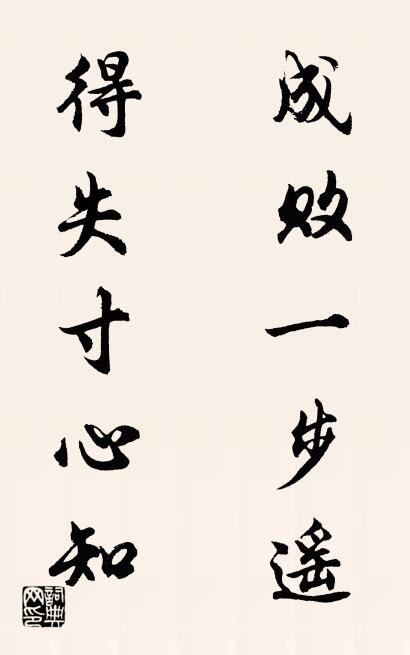 成败一步遥
得失寸心知
詞典網印